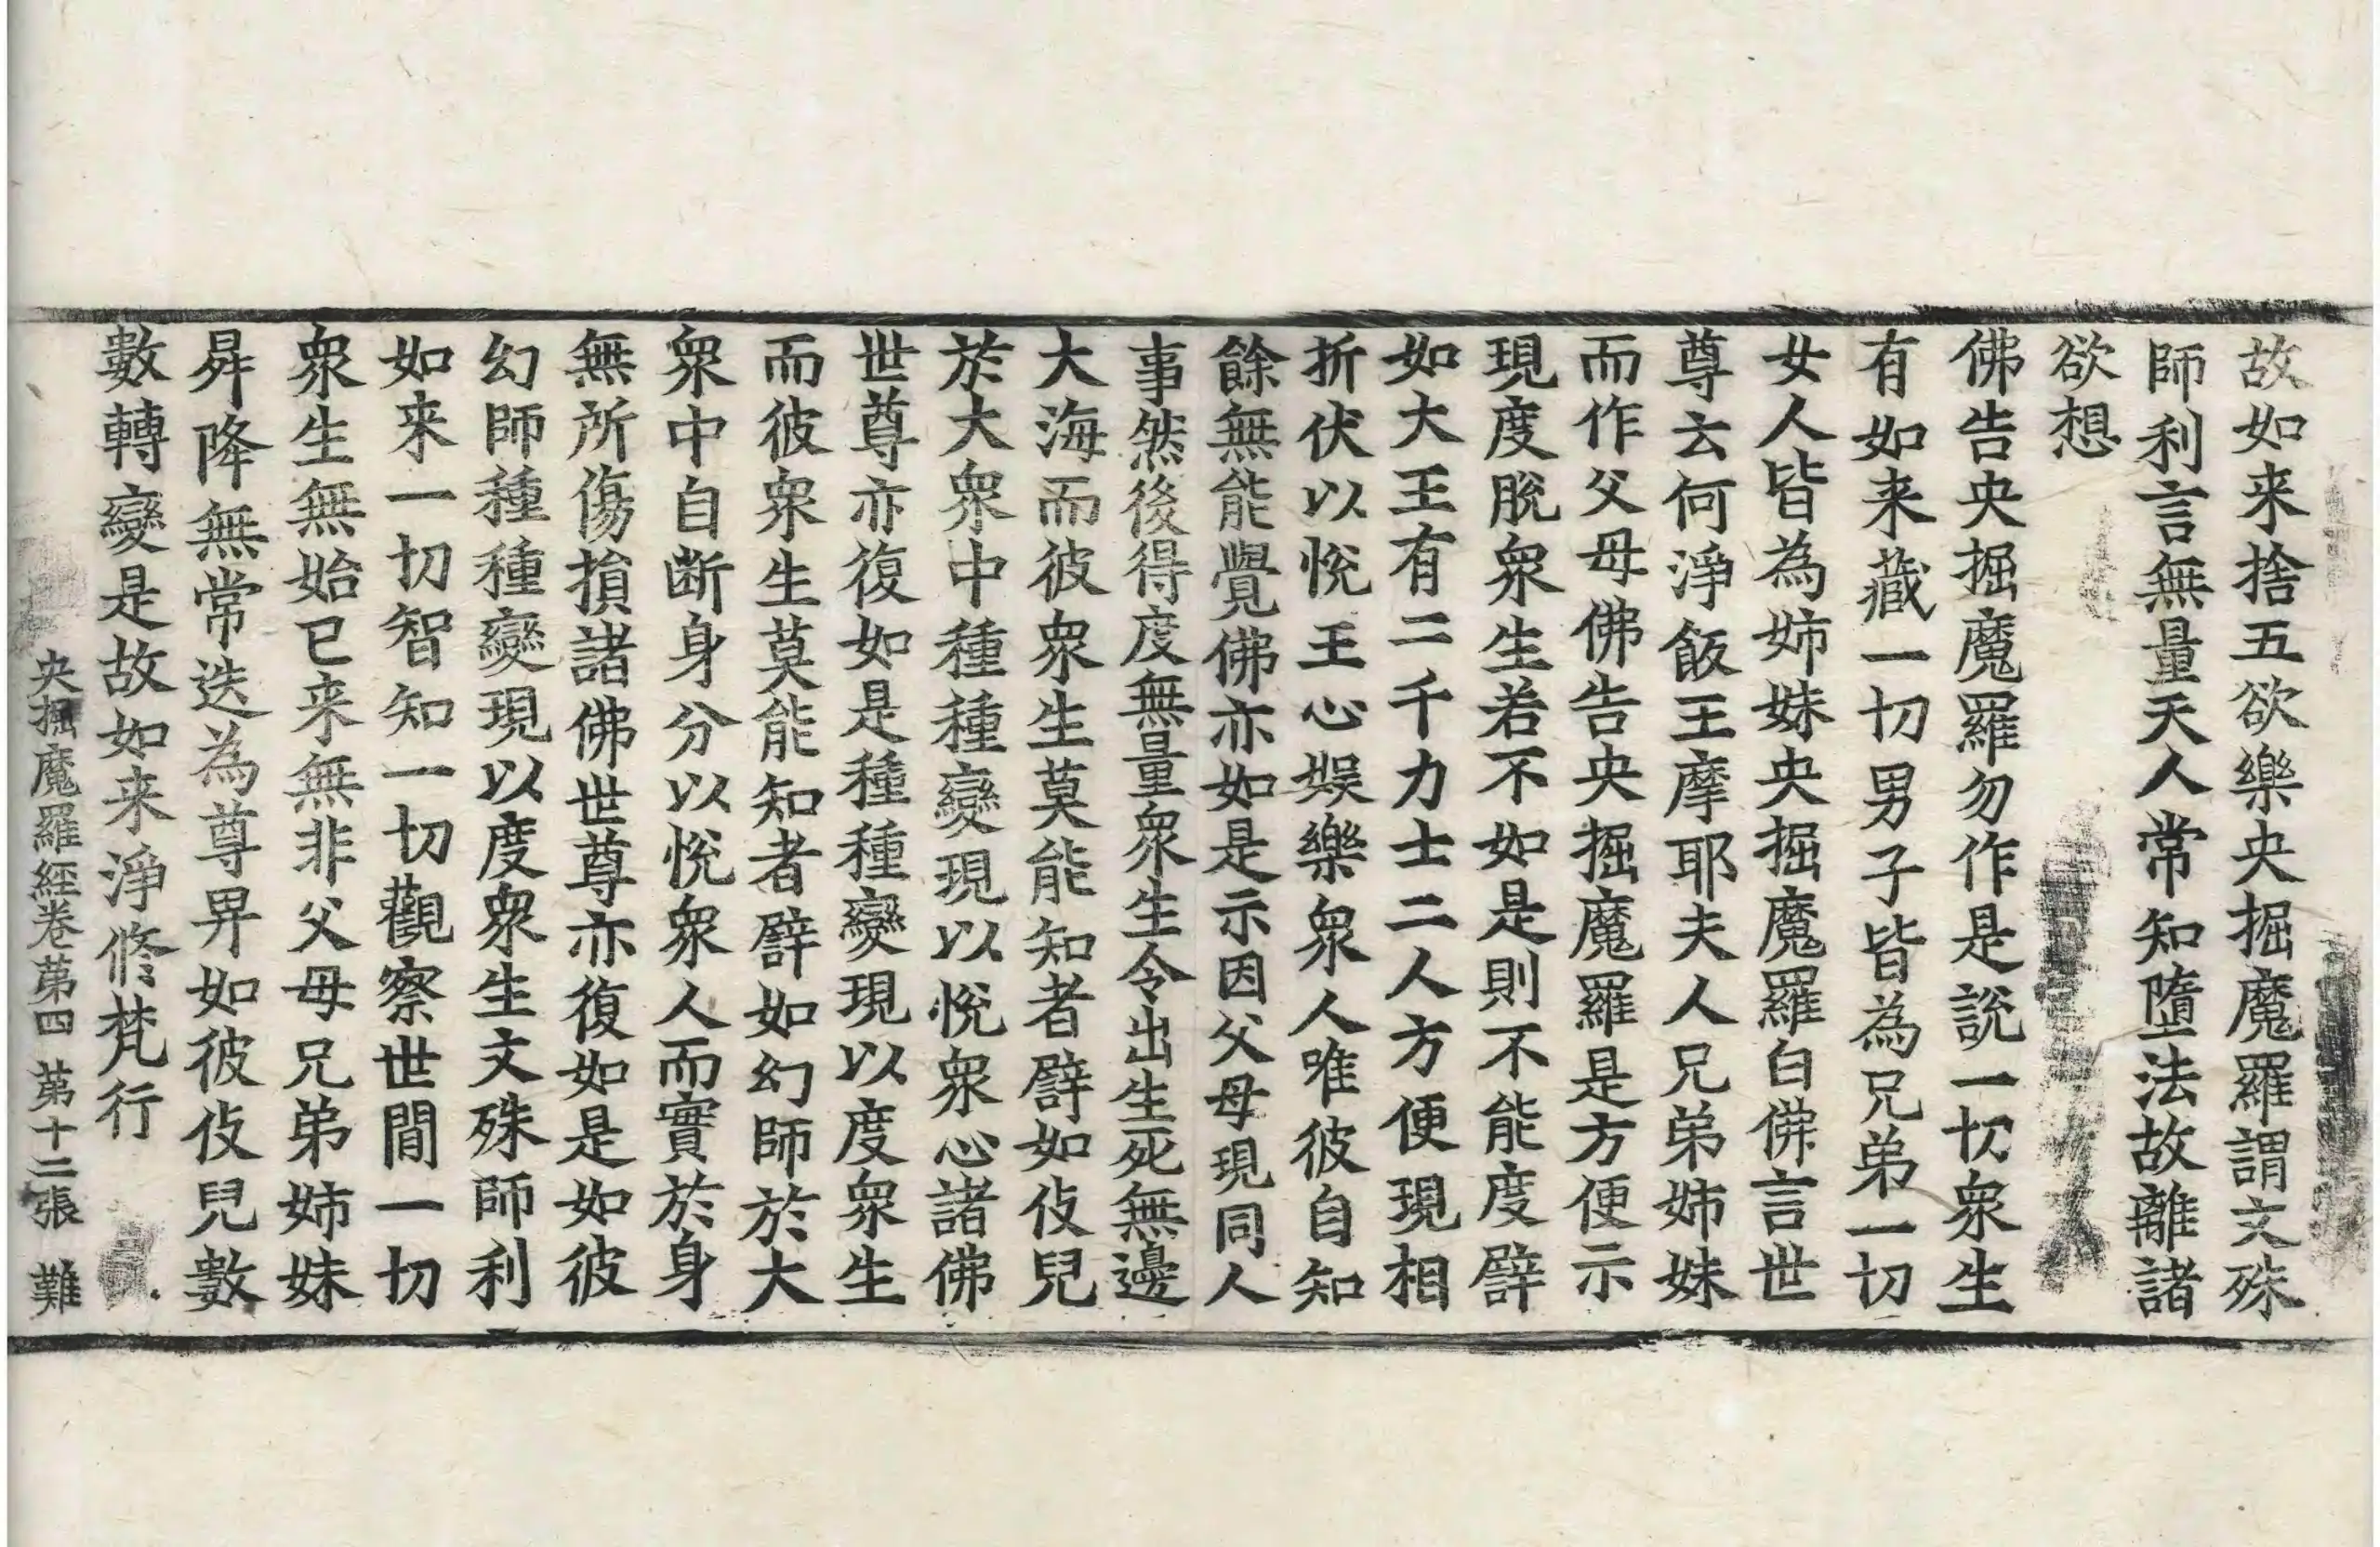 故如来捨五欲樂央掘魔羅謂文殊
師利言無量天人常知墮法故離諸
欲想
佛告央掘魔羅勿作是說一切衆生
有如来藏一切男子皆為兄弟一切
女人皆為姉妹央掘魔羅白佛言世
尊云何淨飯王摩耶夫人兄弟姉妹
而作父母佛告央掘魔羅是方便示
現度脫衆生若不如是則不能度譬
如大王有二千力士二人方便現相
折伏以悅王心娛樂衆人唯彼自知
餘無能覺佛亦如是示因父母現同人
事然後得度無量衆生令出生死無邊
大海而彼衆生莫能知者譬如伎兒
於大衆中種種變現以悅衆心諸佛
世尊亦復如是種種變現以度衆生
而彼衆生莫能知者譬如幻師於大
衆中自断身分以悅衆人而實於身
無所傷損諸佛世尊亦復如是如彼
幻師種種變現以度衆生文殊師利
如来一切智知一切觀察世間一切
衆生無始已来無非父母兄弟姉妹
昇降無常迭為尊卑如彼伎兒數
數轉變是故如来淨修梵行
央掘魔羅經卷第四 第十二張 難